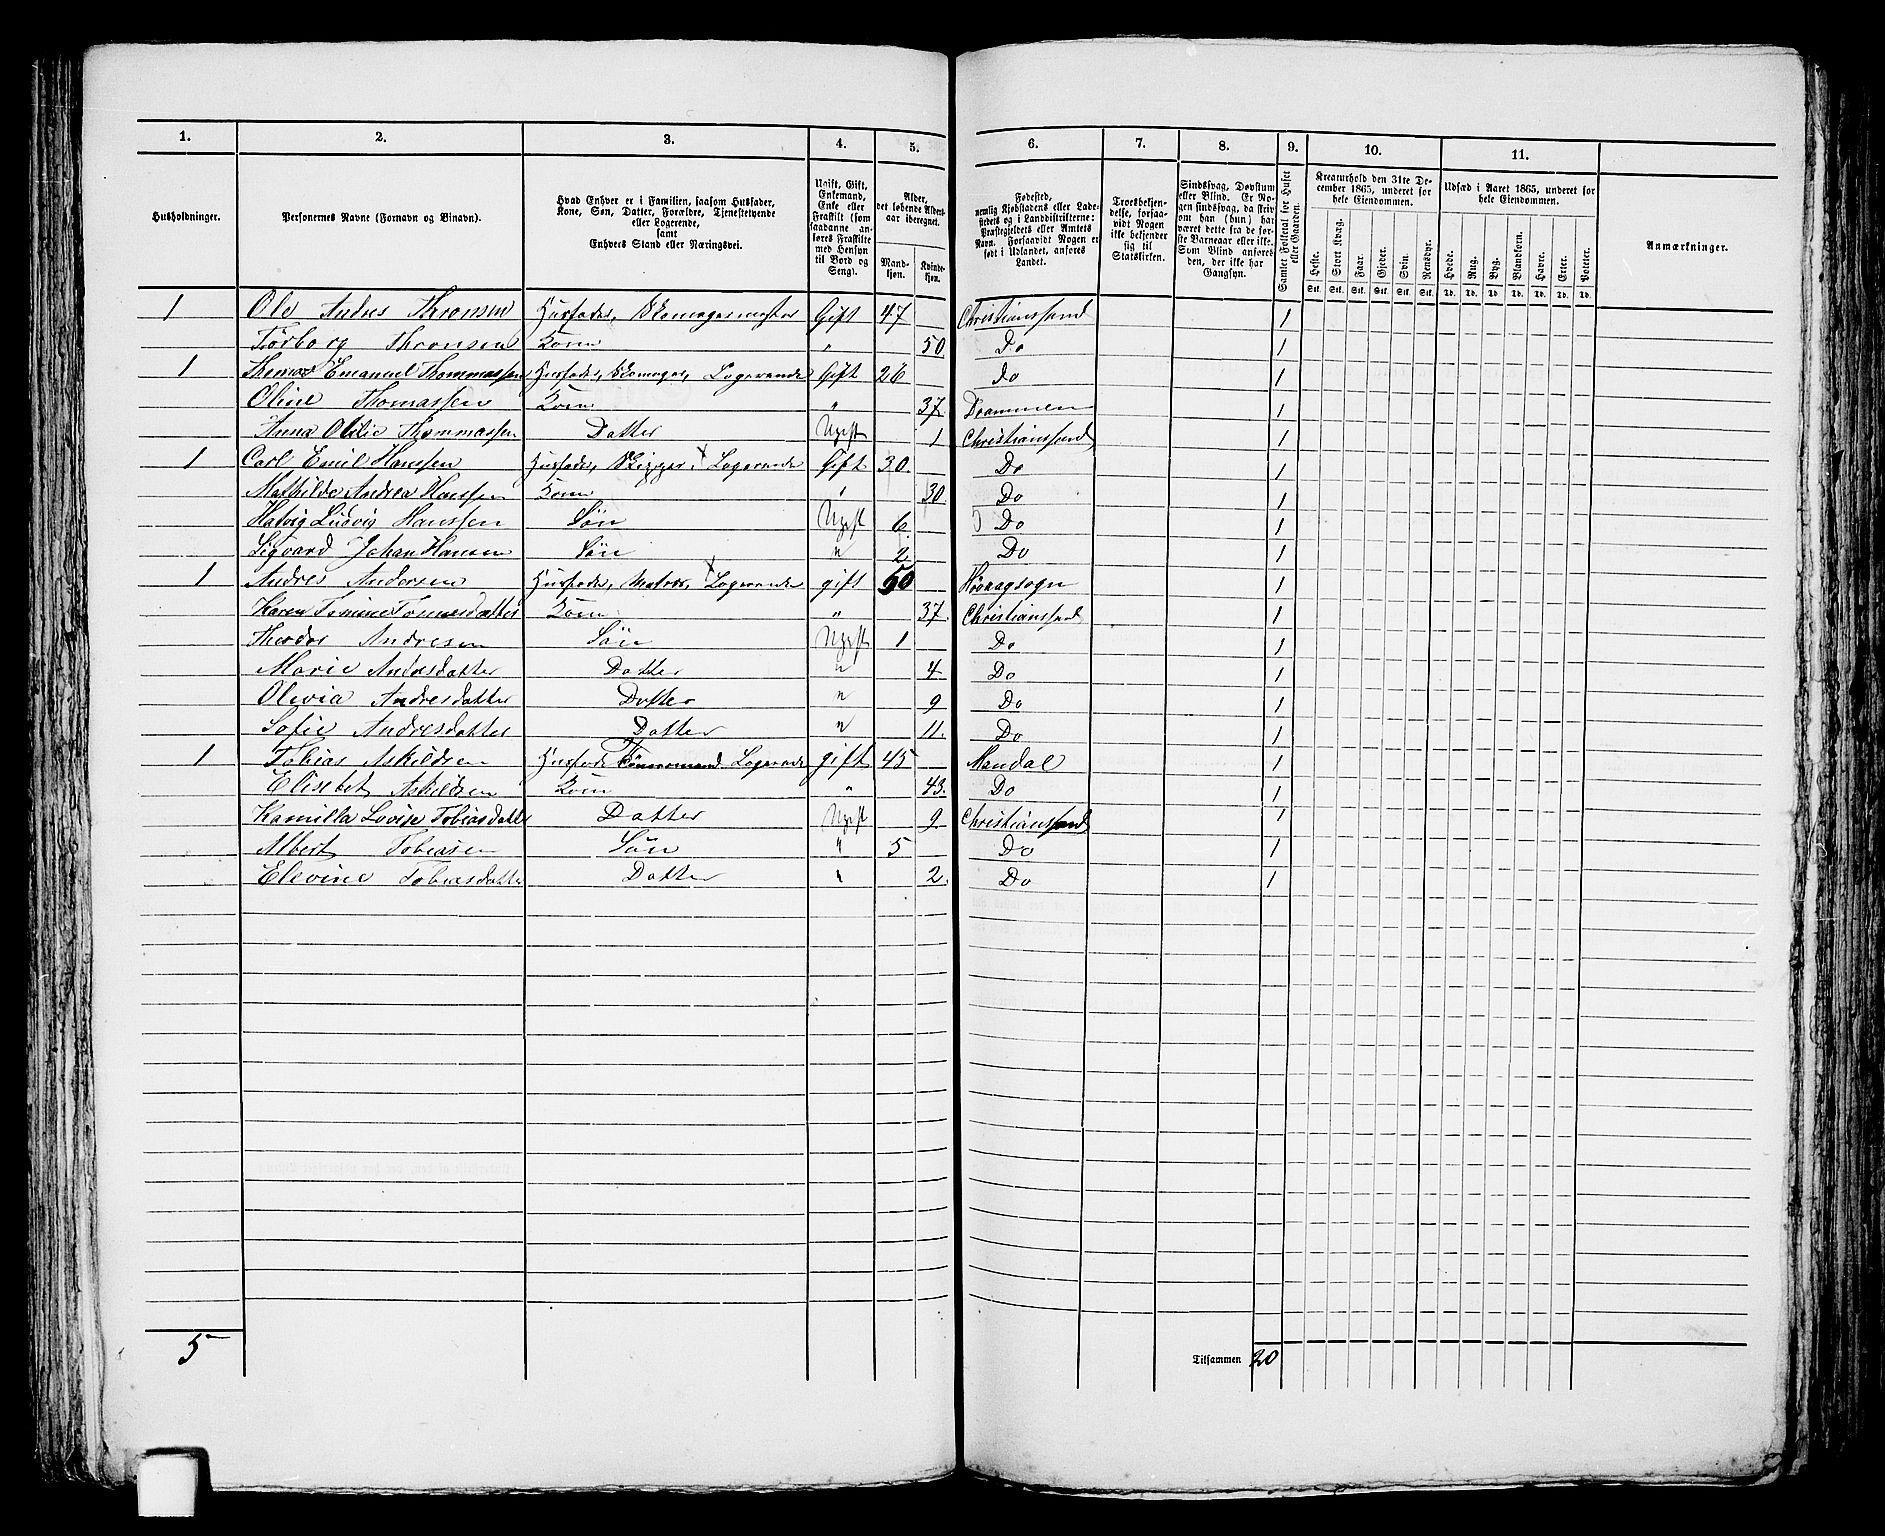 1. 2. 3. 4. 5. 6. 7. 8. 9. 10. 11.
Husholdninger.
Personernes Navne (Fornavn og Binavn).
Hvad Enhver er i Familien, saasom Husfader, Kone, Søn, Datter, Forældre, Tjenestetyende eller Logerende, samt Enhvers Stand eller Næringsvei.
Ugift, Gift, Enkemand, Enke eller Fraskilt (som saadanne anføres Fraskilte med Hensyn til Bord og Seng).
Alder, det løbende Aldersaar iberegnet.
Mandkjøn. Kvindekjøn.
Fødested, nemlig Kjøbstadens eller Ladestedets og i Landdistrikterne: Præstegjeldets eller Amtets Navn. Forsaavidt Nogen er født i Udlandet, anføres Landet.
Troesbekjendelse, forsaavidt Nogen ikke bekjender sig til Statskirken.
Sindssvag, Døvstum eller Blind. Er Nogen sindssvag, da skrives om han (hun) har været dette fra de første Barneaar eller ikke. Som Blind anføres den, der ikke har Gangsyn.
Samlet Folketal for Huset eller Gaarden.
Kreaturhold den 31te December 1865, underet for hele Eiendommen.
Heste. Stort Kvæg. Faar. Gjeder. Svin. Rensdyr.
Stk. Stk. Stk. Stk. Stk. Stk.
Udsæd i Aaret 1865, underet for hele Eiendommen.
Hvede. Rug. Byg. Blandkorn. Havre. Erter. Poteter.
Td. Td. Td. Td. Td. Td. Td.
Anmærkninger.
1 Ole Andres Thronsen Husfader, Skomagermester Gift 47 Christianssand 1
Torborg Thronsen Kone " 50 Do 1
1 Thomas Emanuel Thommassen Husfader, Skomager, Logerende Gift 26 Do 1
Oline Thomassen Kone " 37 Drammen 1
Anna Otilie Thommassen Datter Ugift 1 Christianssand 1
1 Carl Emil Hanssen Husfader, Skipper, Logerende Gift 30. Do 1
Mathilde Andrea Hanssen Kone " 30. Do 1
Ludvig Hanssen Søn Ugift 6. Do 1
Sigvard Johan Hansen Søn " 2 Do 1
1 Andres Andersen Husfader, Matros, Logerende gift 50 Høvaagsogn 1
Karen Tomine Tønnesdatter Kone " 37. Christianssand 1
Theodor Andresen Søn Ugift 1 Do 1
Marie Andresdatter Datter " 4 Do 1
Olevia Andresdatter Datter " 9 Do 1
Sofie Andresdatter Datter " 11. Do 1
1 Tobias Askildsen Husfader Tømmermand Logerende gift 45 Mandal 1
Elisebet Askildsen Kone " 43. Do 1
Kamilla Lovise Tobiasdatter Datter Ugift 9. Christianssand 1
Albert Tobiasen Søn " 5 Do 1
Elevine Tobiasdatter Datter " 2. Do 1
5 Tilsammen 20